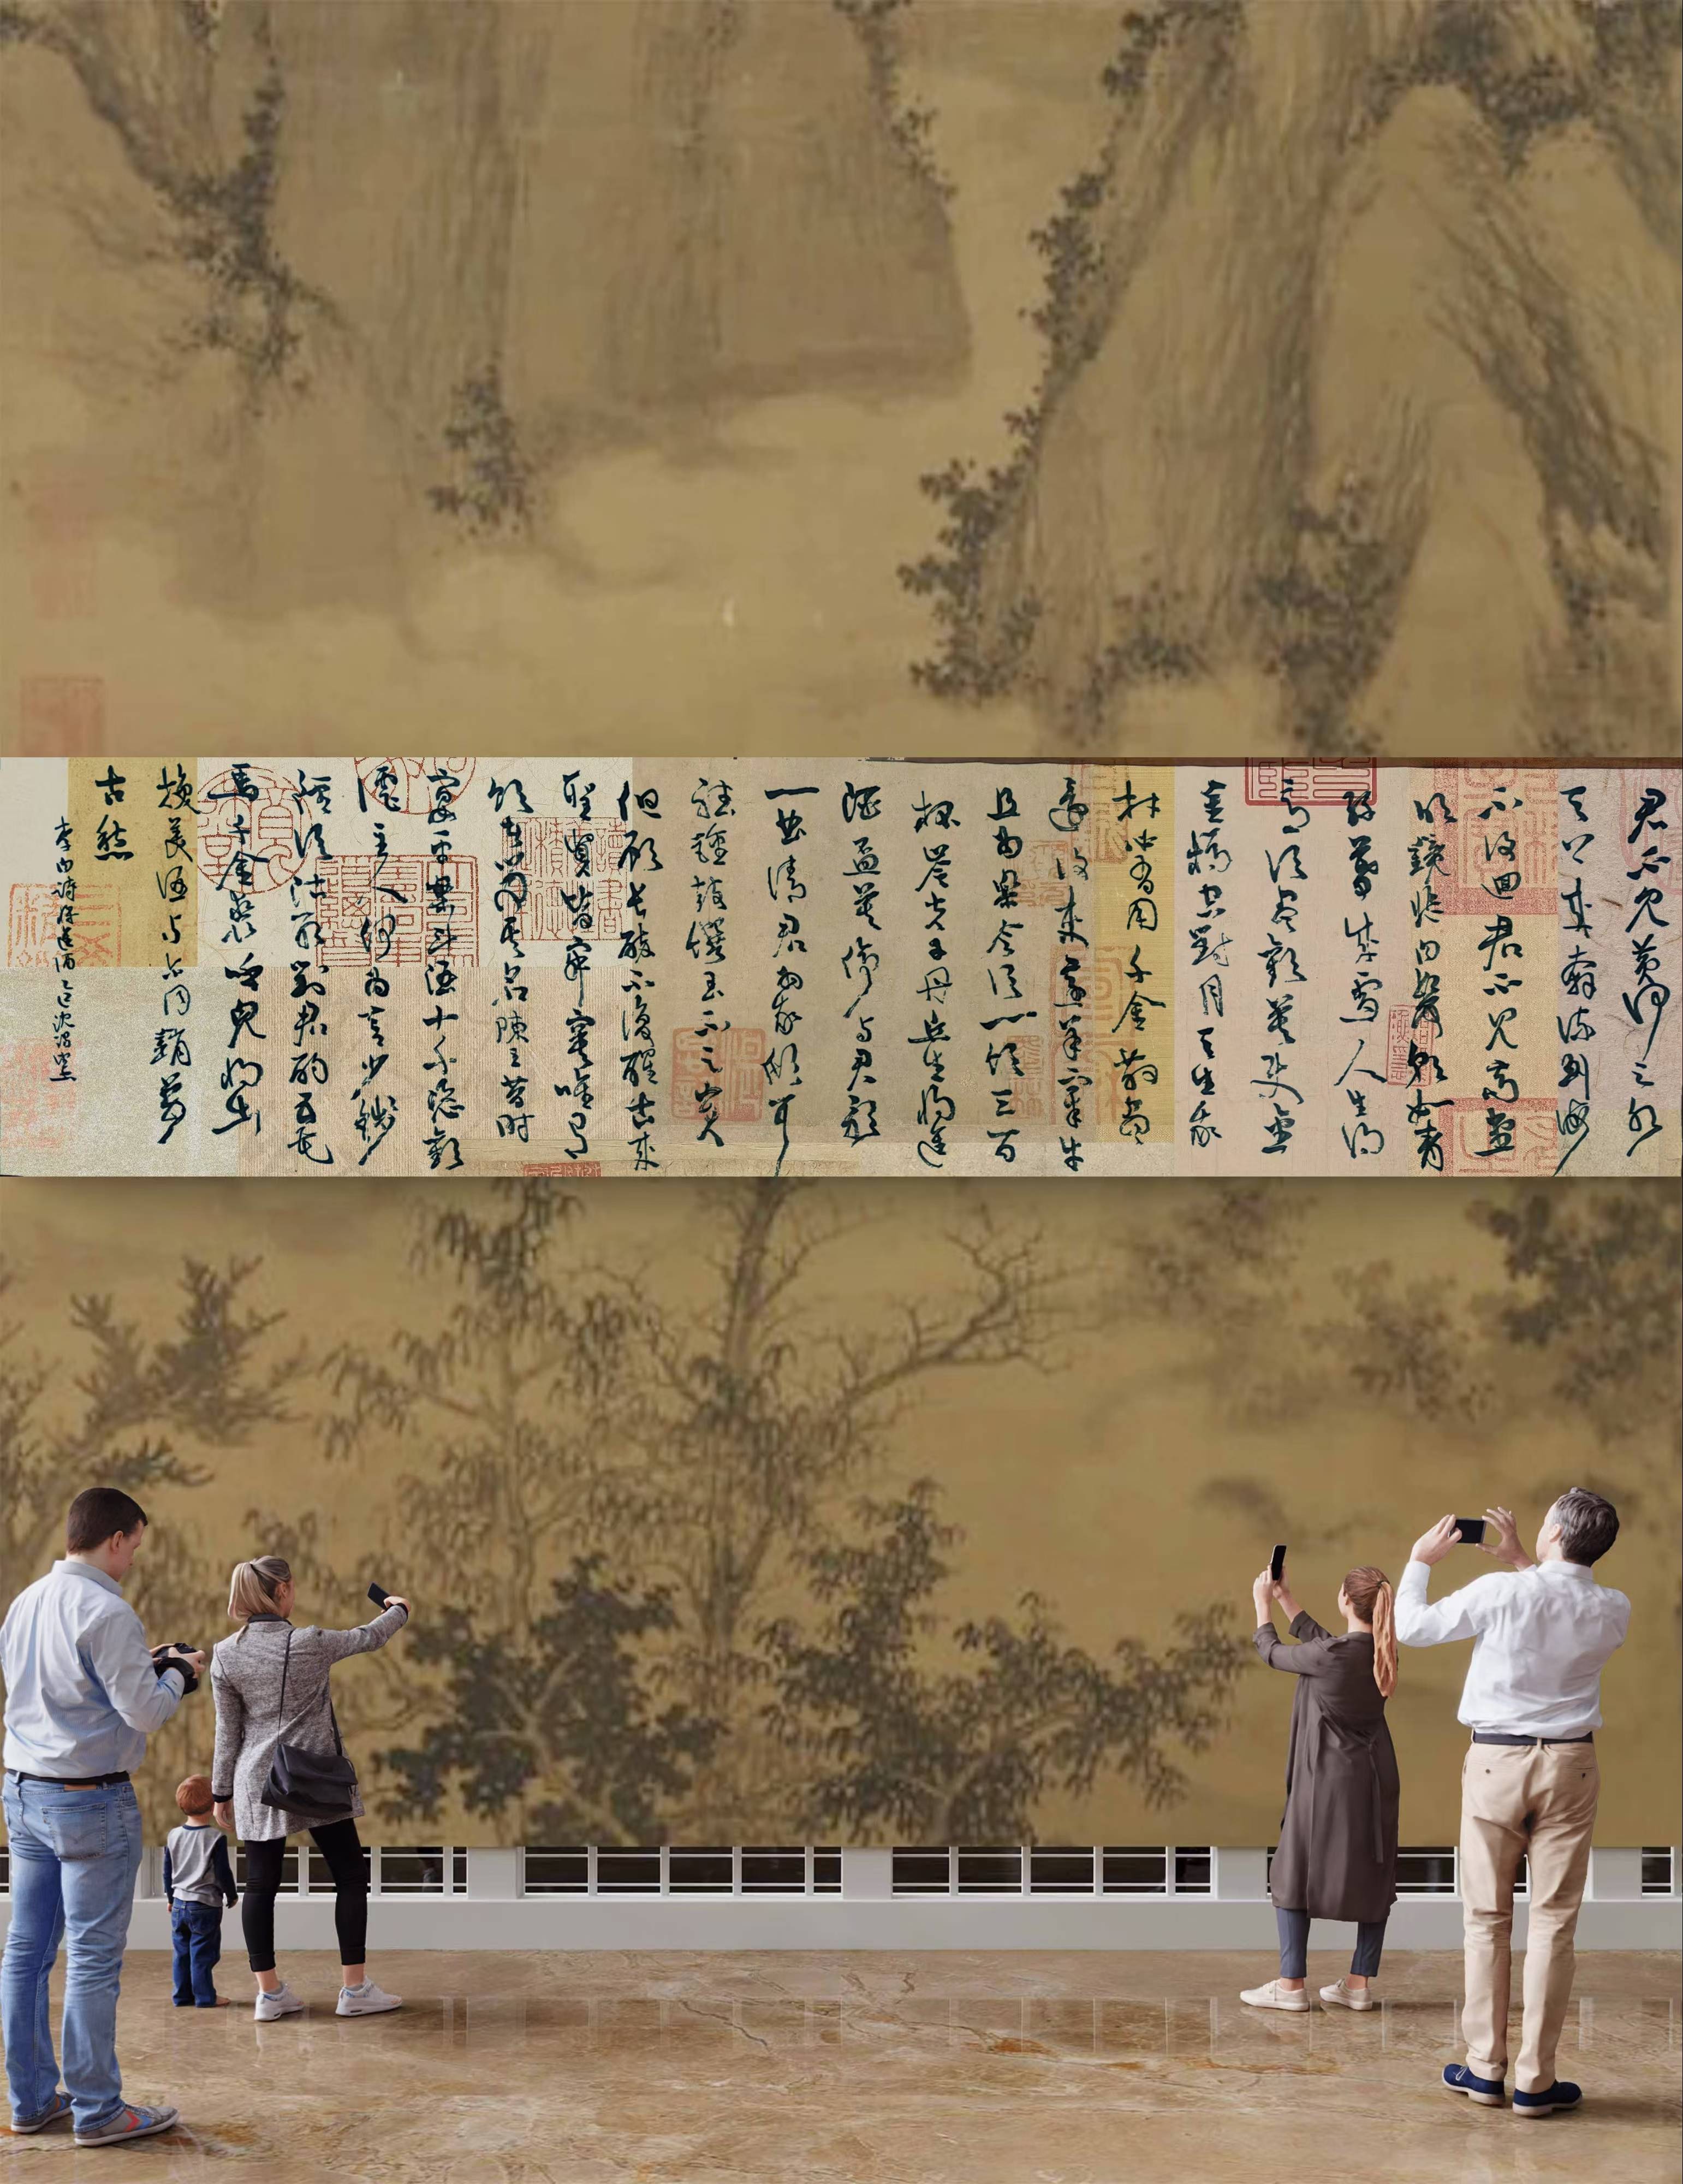 君不見黃河之水
天上來奔流到海
不復回君不見高堂
明鏡悲白髮朝如青
絲暮成雪人生得
意須盡歡莫使
樽空對月天生我
材必有用千金散盡
還復來烹羊宰牛
且為樂會須一飲三百
杯岑夫子丹丘生將進
酒盃莫停與君歌
一曲請君為我傾耳
聽鐘鼓饌玉不足貴
但願長醉不復醒古來
聖賢皆寂寞唯有
飲者留其名陳王昔時
宴平樂斗酒十千恣歡
謔主人何為言少錢
徑須沽取對君酌五花
馬千金裘呼兒將出
換美酒與爾同銷萬
古愁
李白詩將進酒乙巳沈